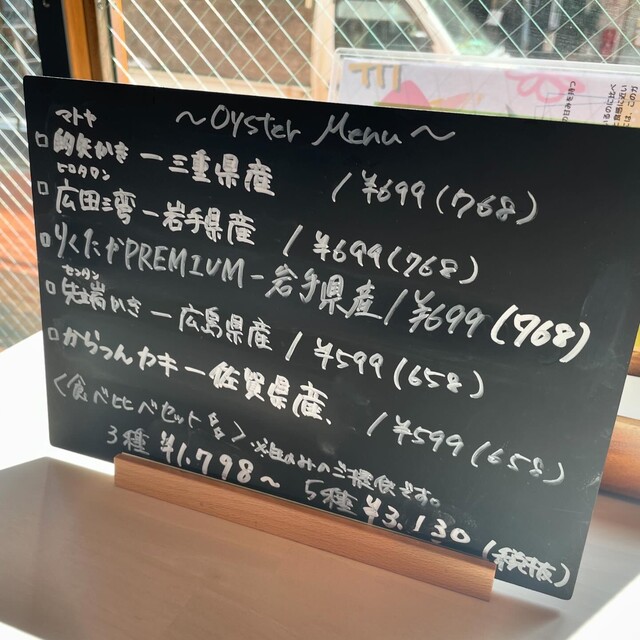 ~Oyster Menu~
マトヤ
□的矢かき ー三重県産 / ¥699(768)
ヒロタワン
□広田湾 ー岩手県産 / ¥699(768)
□りくたかPREMIUMー岩手県産 / ¥699(768)
センタン
□先端かき ー広島県産 / ¥599(658)
□からつんカキー佐賀県産、 / ¥599(658)
〈食べ比べセット〉※生のみのご提供です。
3種 ¥1.798~ 5種 ¥3.130(税抜)